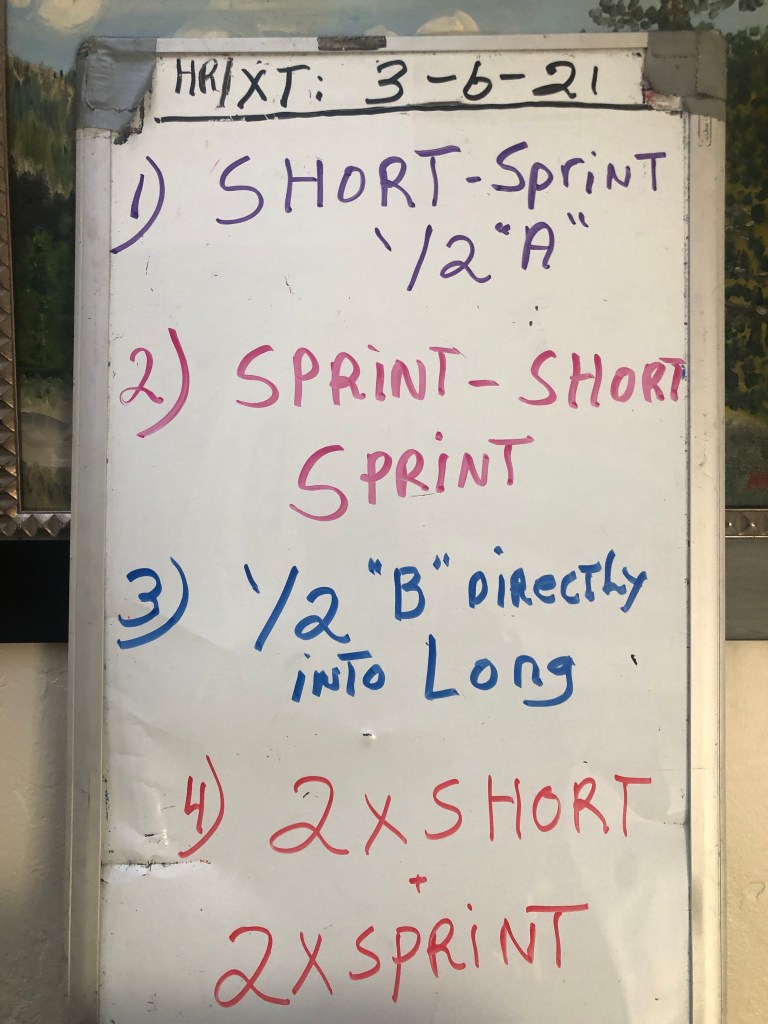 HR/XT: 3-6-21
1) SHORT-Sprint
1/2 "A"
2) SPRiNT-SHORT
SPRiNT
3) 1/2 "B" DiRECTLy
iNTo Long
4) 2xSHORT
+
2xSPRiNT